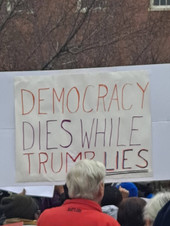 DEMOCRACY
DIES WHILE
TRUMP LIES